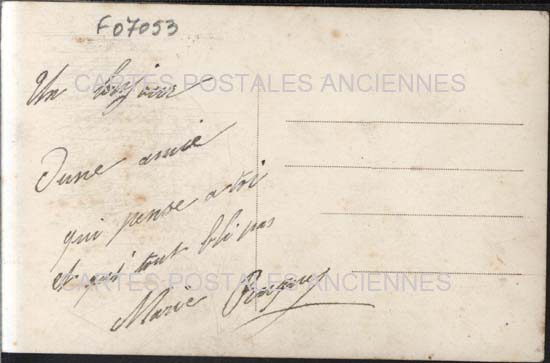 F07053
CARTES POSTALES ANCIENNES
Un bonjour
d'une amie
qui pense a toi
et qui t'out bli pas
CARTES POSTALES ANCIENNES
Marie